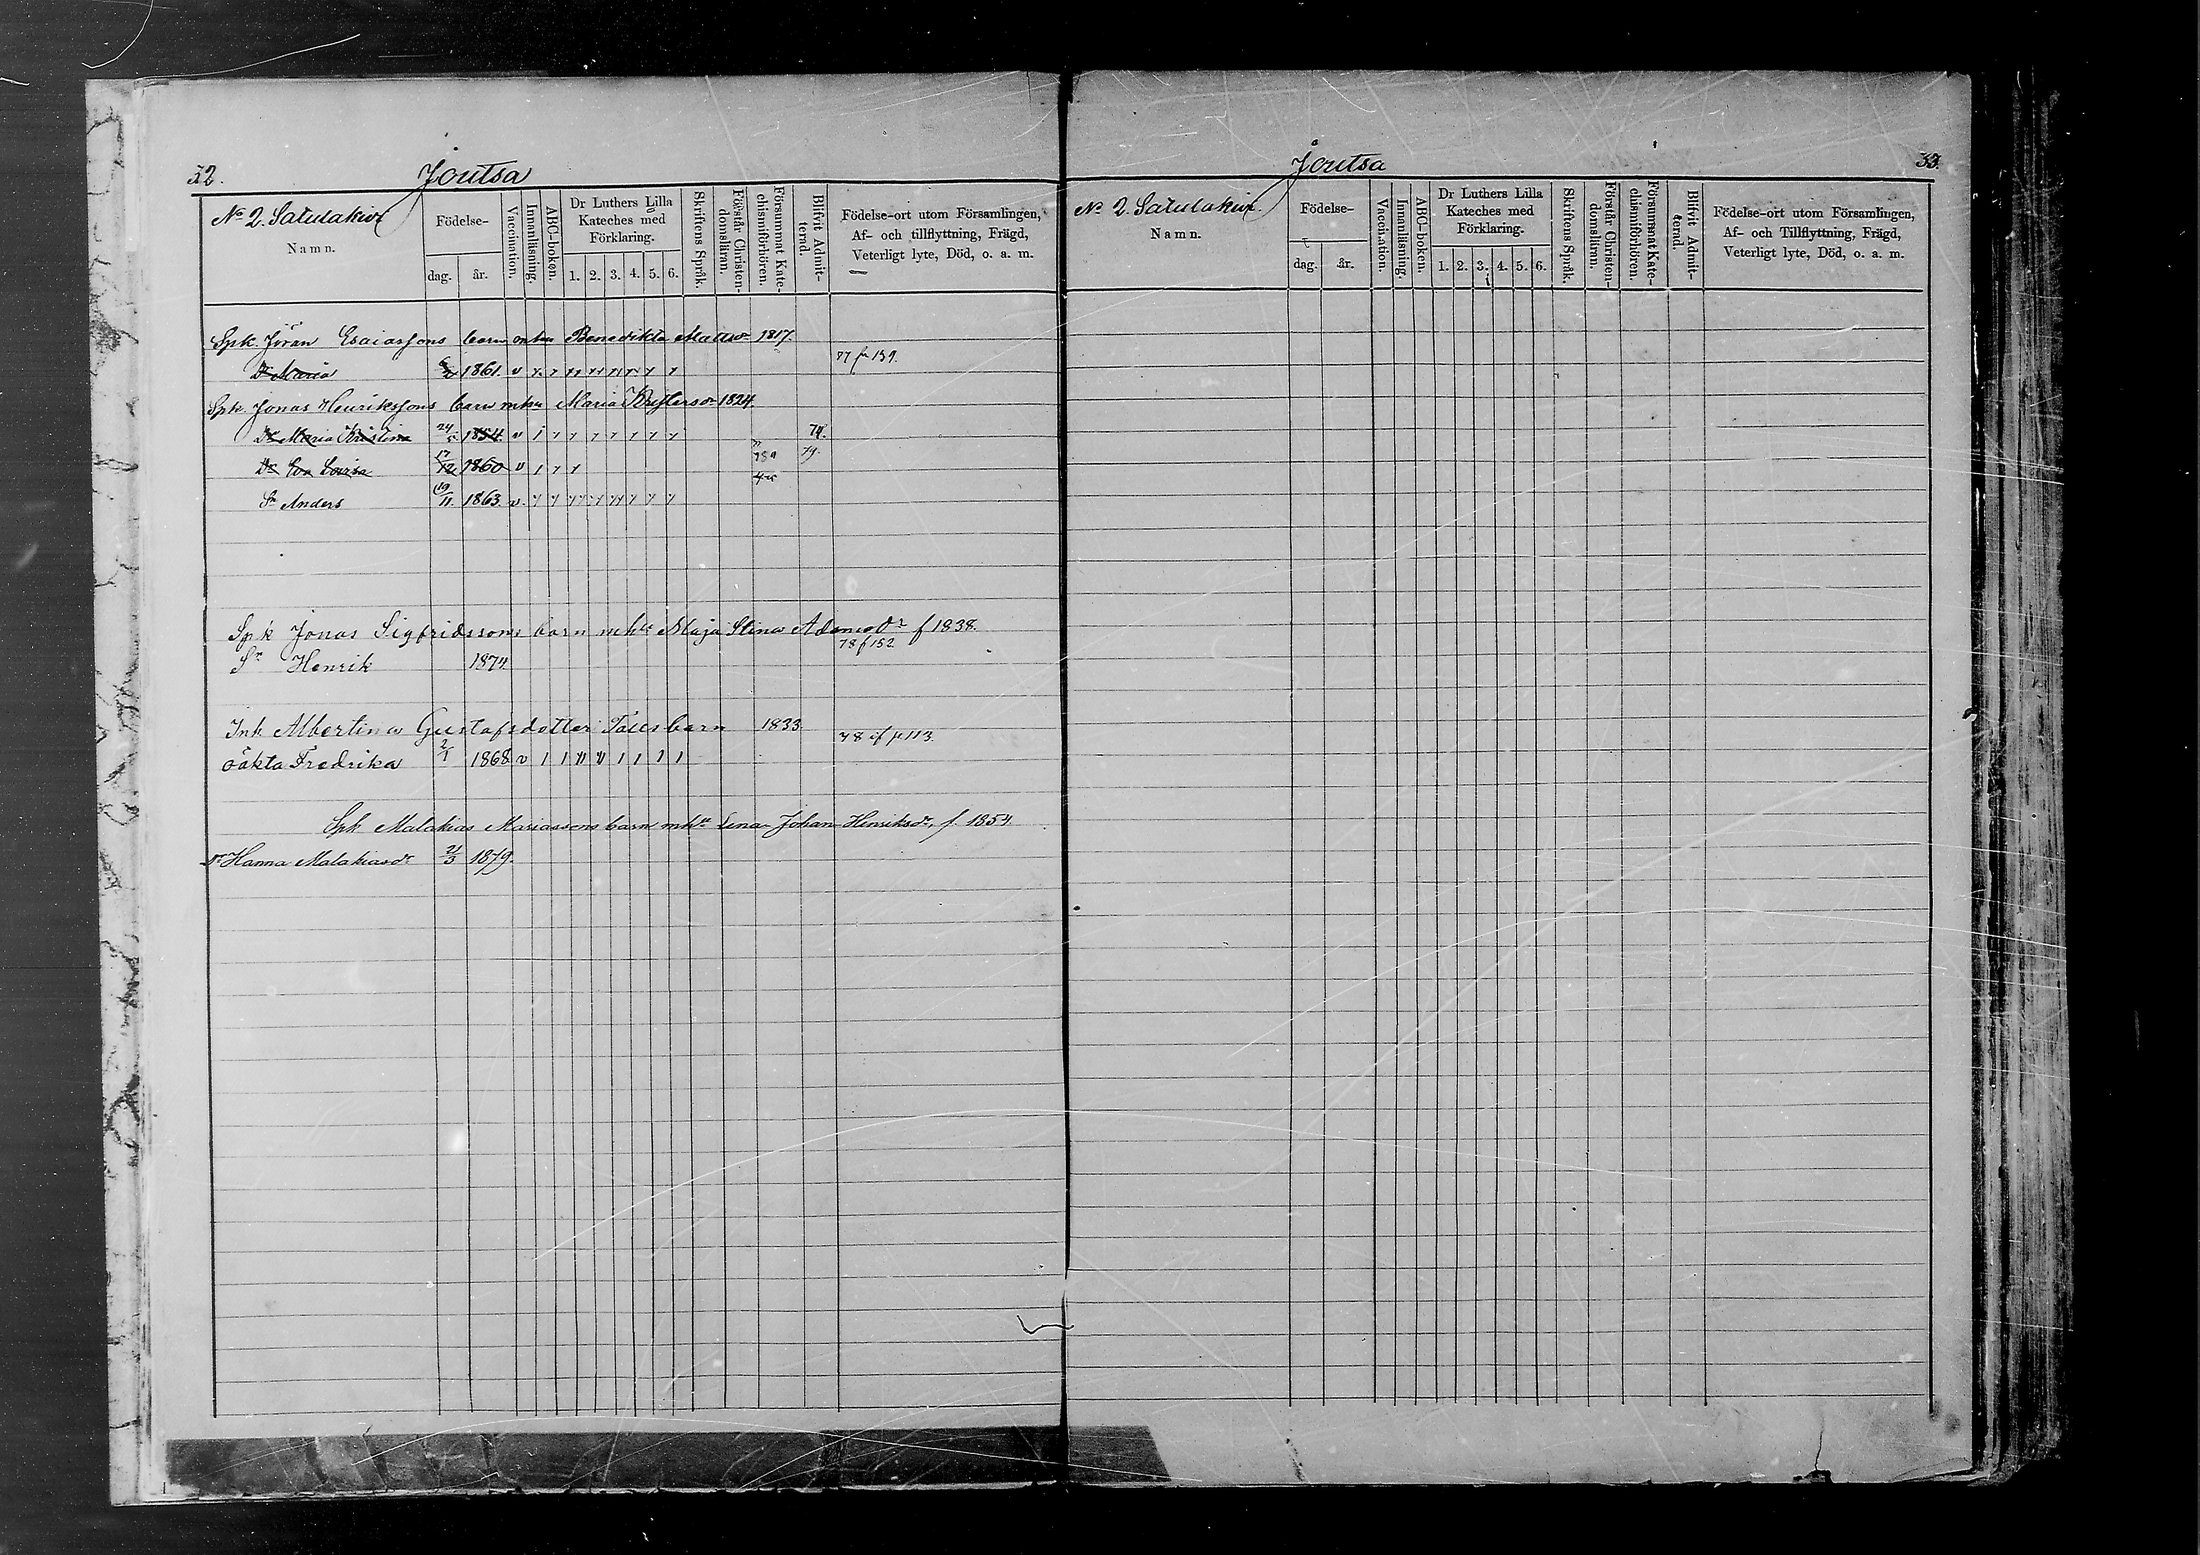 32. Joutsa
No 2. Satulakivi
Namn.
Födelse-
dag. år.
Vaccination.
Innanläsning.
ABC-boken.
Dr Luthers Lilla Kateches med Förklaring.
1. 2. 3. 4. 5. 6.
Skriftens Språk.
Förstår Christendomsläran.
Försummat Katechismiförhören.
Blifvit Admitternd.
Födelse-ort utom Församlingen,
Af- och tillflyttning, Frägd,
Veterligt lyte, Död, o. a. m.
Spk. Jöran Esaiassons barn m hu Benedikta Mattsdr 1817.
77 p 139.
Dr Maria 1861. v
Spk Jonas Henrikssons barn mhu Maria Kristersdr 1824.
Dr Maria Kristina 24/5 1854. v 74.
Dr Eva Lovisa 17/12 1860 v 79.
Sn Anders 19/11. 1863. v.
Spk Jonas Sigfridssons barn mhu Maja Stina Adamsdr f 1838.
78 p 152
Sn Henrik 1874
Ink Albertina Gustafsdotter barn 1833.
78 p 113.
oäkta Fredrika 2/1 1868 v
Spk Malakias Mariassons barn mhu Lena Johan Henriksdr, f. 1854.
Dr Hanna Malakiasdr 21/3 1879.
Joutsa 33.
No 2. Satulakivi.
Namn.
Födelse-
dag. år.
Vaccination.
Innanläsning.
ABC-boken.
Dr Luthers Lilla Kateches med Förklaring.
1. 2. 3. 4. 5. 6.
Skriftens Språk.
Förstår Christendomslämn.
Försummat Katechismiförhören.
Blifvit Admitternd.
Födelse-ort utom Församlingen,
Af- och Tillflyttning, Frägd,
Veterligt lyte, Död, o. a. m.